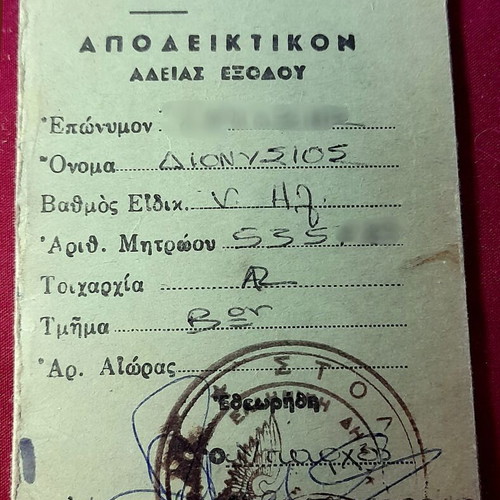 ΑΠΟΔΕΙΚΤΙΚΟΝ
ΑΔΕΙΑΣ ΕΞΟΔΟΥ
Ἐπώνυμον
Ὄνομα ΔΙΟΝΥΣΙΟΣ
Βαθμὸς Εἰδικ. Ν Ηλ.
Ἀριθ. Μητρώου 535
Τοιχαρχία
Τμῆμα Βον
Ἀρ. Αἰώρας
ΣΤΟΛ
Ἐθεωρήθη